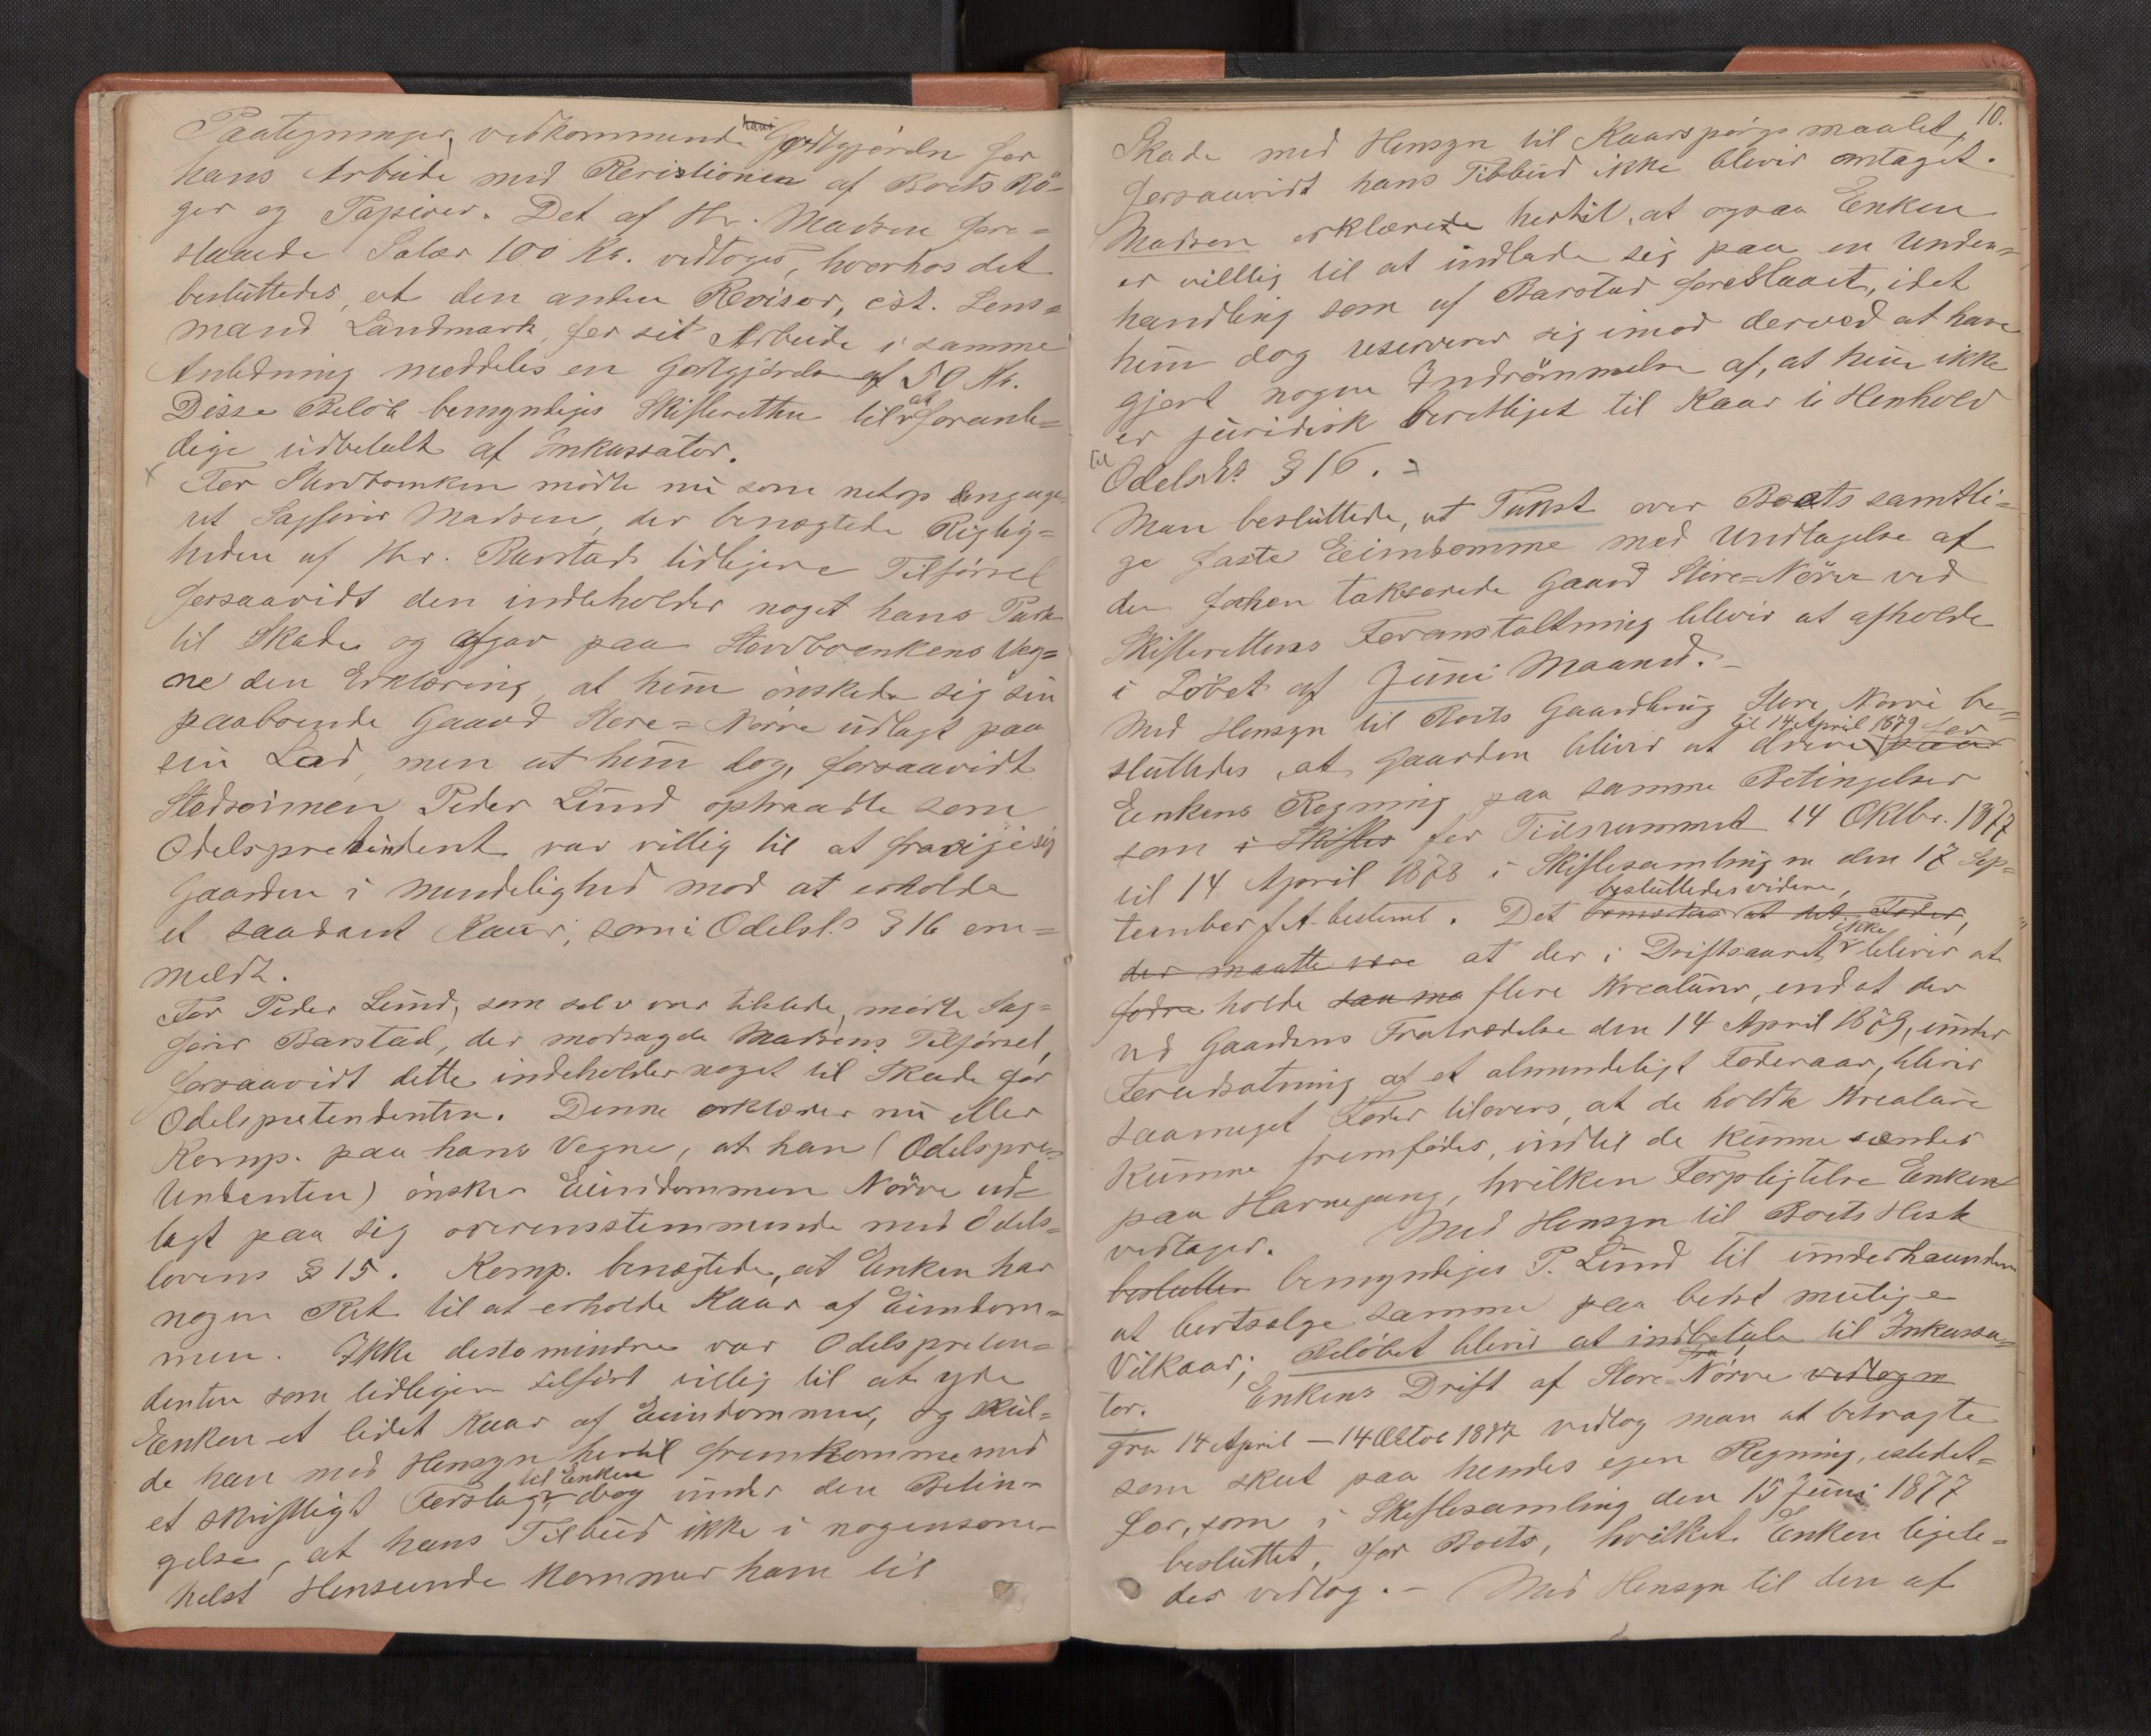 Paategninger vedkommende Godtgjørelse for
hans Arbeide med Revistionen af Boets Bø-
ger og Papirer. Det af Hr. Madsen fore-
slaaede Salær 100 Kr. vedtoges, hvorhos det
besluttedes, at den anden Revisor, cst. Lens-
mand Landmark, for sit Arbeide i samme
Anledning meddeles en Godtgjørelse af 50 Kr.
Disse Beløb bemyndiges Skifteretten til at foranle-
dige udbetalt af Inkassator.
For Stervboenken mødte nu som netop engage-
ret Sagfører Madsen, der benægtede Rigtig-
heden af Hr. Barstads tidligere Tilførsel
forsaavidt den indeholder noget hans Part
til Skade og afgav paa Stervboenkens Veg-
ne den Erklæring, at hun ønskede sig sin
paaboende Gaard Store-Nørve udlagt paa
sin Lod, men at hun dog, forsaavidt
Stedsønnen Peder Lund optraadte som
Odelspretendent var villig til at fravige sig
Gaarden i Mindelighed mod at erholde
et saadant Kaar, som i Odelsl.s § 16 om-
meldt.
For Peder Lund, som selv var tilstede, mødte Sag-
fører Barstad, der modsagde Madsens Tilførsel,
forsaavidt dette indeholder noget til Skade for
Odelspretendenten. Denne erklærer nu eller
Komp. paa hans Vegne, at han (Odelspre-
tendenten) ønsker Eiendommen Nørve ud-
lagt paa sig overensstemmende med Odels-
lovens § 15. Komp. benægtede, at Enken har
nogen Ret til at erholde Kaar af Eiendom-
men. Ikke destomindre var Odelspreten-
denten som tidligere tilført villig til at yde
Enken et lidet Kaar af Eiendommen, og skul-
de han med Hensyn hertil fremkomme med
et skriftligt Forslag til Enken dog under den Betin-
gelse, at hans Tilbud ikke i nogensom-
helst Henseende kommer ham til
10.
Skade med Hensyn til Kaarspørgsmaalet,
forsaavidt hans Tilbud ikke bliver antaget.
Madsen erklærede hertil, at ogsaa Enken
er villig til at indlade sig paa en Under-
handling som af Barstad foreslaaet, idet
hun dog reserverer sig imod derved at have
gjort nogen Indrømmelse af, at hun ikke
er juridisk berettiget til Kaar i Henhold
til Odelsl.s § 16.
Man besluttede, at Takst over Boets samtli-
ge faste Eiendomme med Undtagelse af
den forhen takserede Gaard Store-Nørve ved
Skifterettens Foranstaltning bliver at afholde
i Løbet af Juni Maaned.
Med Hensyn til Boets Gaardbrug Store Nørve be-
sluttedes, at Gaarden bliver at drive til 14 April 1879 for
Enkens Regning paa samme Betingelser
som i Skiftes for Tidsrummet 14 Oktbr. 1877
til 14 April 1878 i Skiftesamlingen den 17 Sep-
tember f. A. bestemt. Det bemærkes at det Foder, besluttedes videre,
der maatte være at der i Driftsaaret ikke bliver at
fodre holde saa ma flere Kreature, end at der
ved Gaardens Fratrædelse den 14 April 1879, under
Forudsætning af et almindeligt Foderaar, bliver
saameget Foder tilovers, at de holdte Kreature
kunne fremfødes, indtil de kunne sendes
paa Havnegang, hvilken Forpligtelse Enken
vedtager. Med Hensyn til Boets Hest
beslutter bemyndiges P. Lund til underhaanden
at bortsælge samme paa bedst mulige
Vilkaar; Beløbet bliver at indbetale til Inkassa-
tor. Enkens Drift af Store-Nørve vedtogen
fra 14 April – 14 Oktob 1877 vedtog man at betragte
som skeet paa hendes egen Regning, istedet-
for, som i Skiftesamling den 15 Juni 1877
besluttet, for Boets, hvilket Enken ligele-
des vedtog. – Med Hensyn til den af